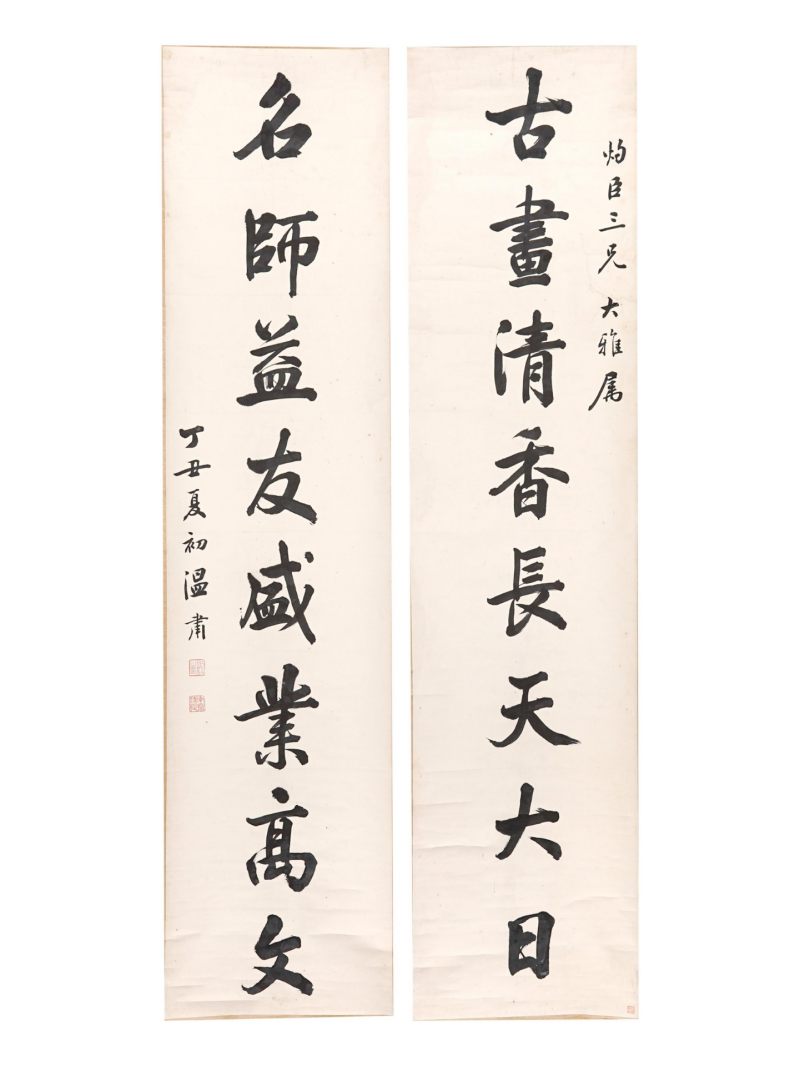 灼臣三兄大雅属
古畫清香長天大日
名師益友盛業高文
丁丑夏初溫肅